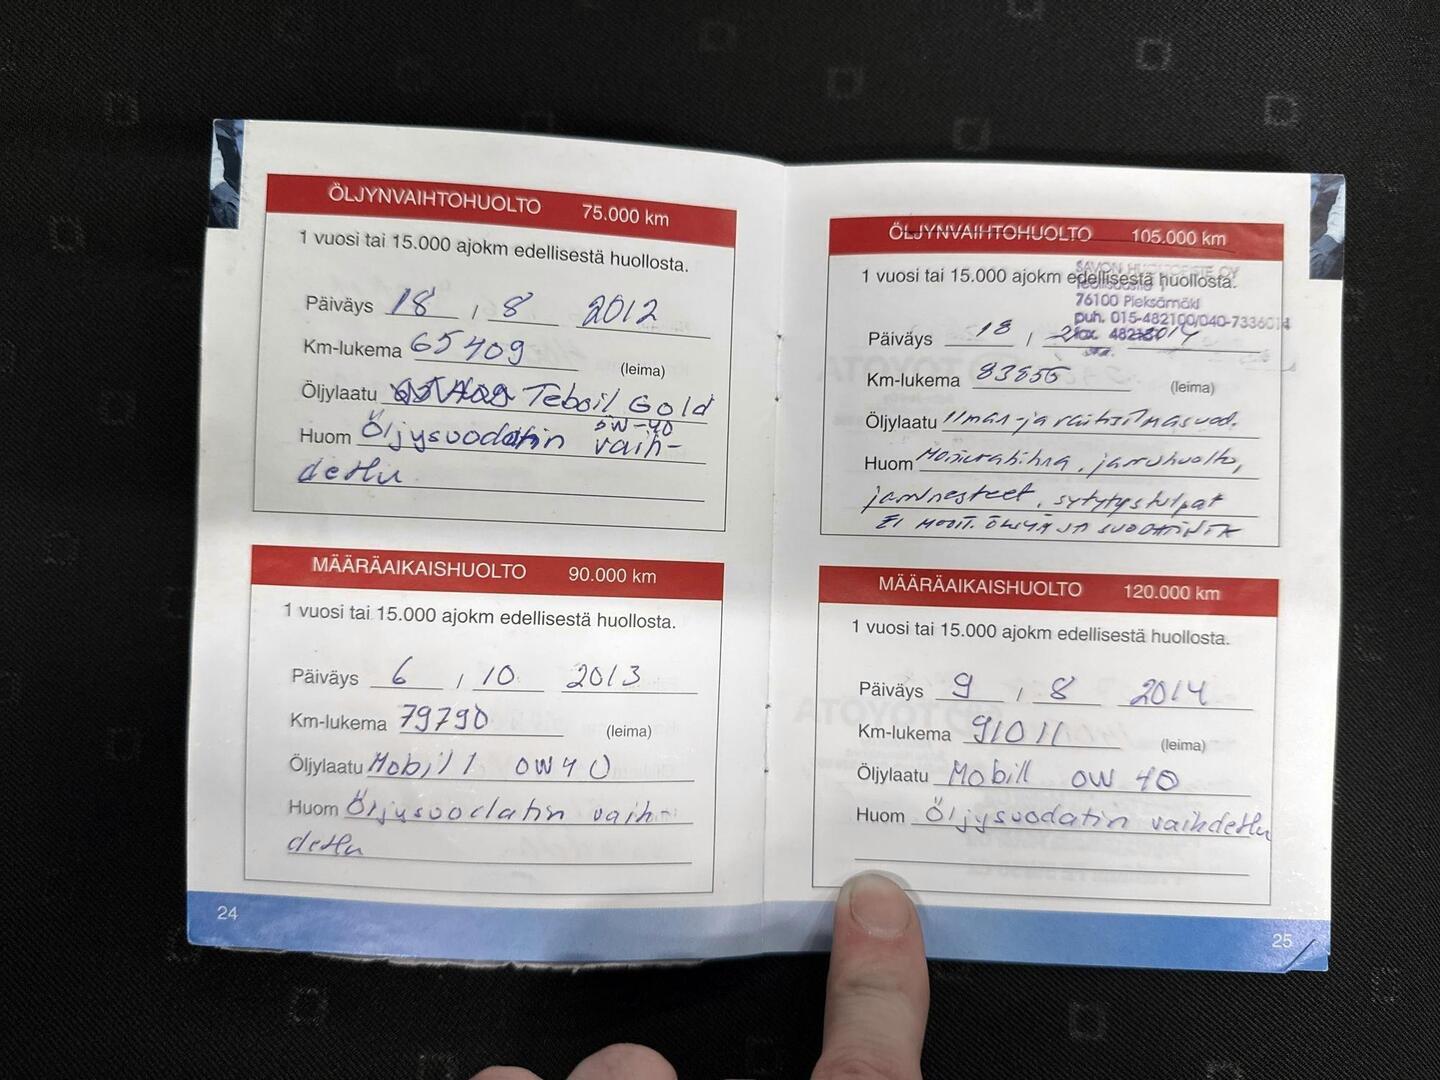 ÖLJYNVAIHTOHUOLTO 75.000 km
1 vuosi tai 15.000 ajokm edellisestä huollosta.
Päiväys 18 , 8 2012
Km-lukema 65409 (leima)
Öljylaatu Teboil Gold
0W-40
Huom Öljysuodatin vaih-
dettu
MÄÄRÄAIKAISHUOLTO 90.000 km
1 vuosi tai 15.000 ajokm edellisestä huollosta.
Päiväys 6 , 10 2013
Km-lukema 79790 (leima)
Öljylaatu Mobil 1 0W40
Huom Öljysuodatin vaih-
dettu
24
ÖLJYNVAIHTOHUOLTO 105.000 km
1 vuosi tai 15.000 ajokm edellisestä huollosta.
SAVON OY
76100 Pieksämäki
puh. 015-482100/040-7336014
fax.
Päiväys 18 / 2014
Km-lukema 83855 (leima)
Öljylaatu Ilman- ja raitisilmasuod.
Huom Moniurahihna, jarruhuolto,
jarrunesteet, sytytystulpat
EI MOOT. ÖLJYÄ JA SUODATINTA
MÄÄRÄAIKAISHUOLTO 120.000 km
1 vuosi tai 15.000 ajokm edellisestä huollosta.
Päiväys 9 , 8 2014
Km-lukema 91011 (leima)
Öljylaatu Mobil1 0W 40
Huom Öljysuodatin vaihdettu
25